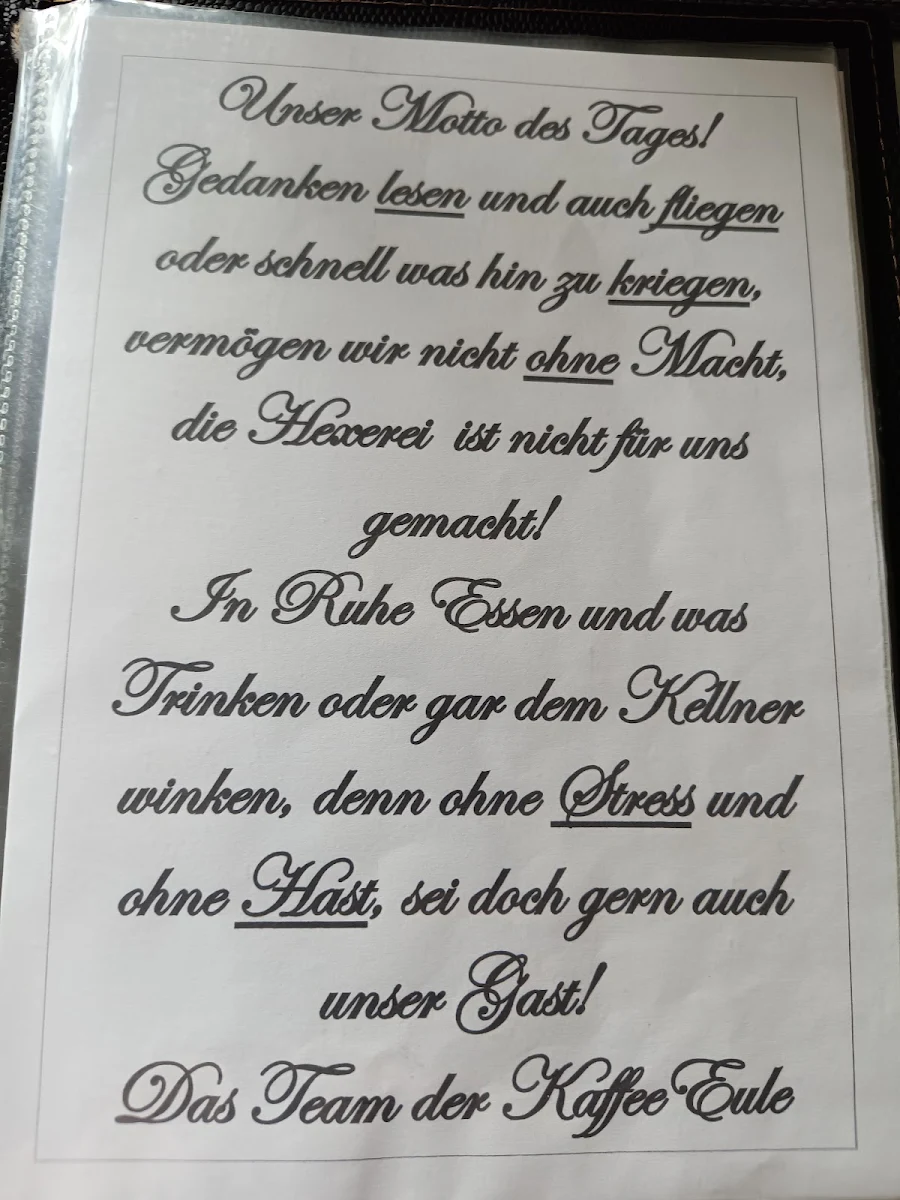 Unser Motto des Tages!
Gedanken lesen und auch fliegen
oder schnell was hin zu kriegen,
vermögen wir nicht ohne Macht,
die Hexerei ist nicht für uns
gemacht!
In Ruhe Essen und was
Trinken oder gar dem Kellner
winken, denn ohne Stress und
ohne Hast, sei doch gern auch
unser Gast!
Das Team der KaffeeEule